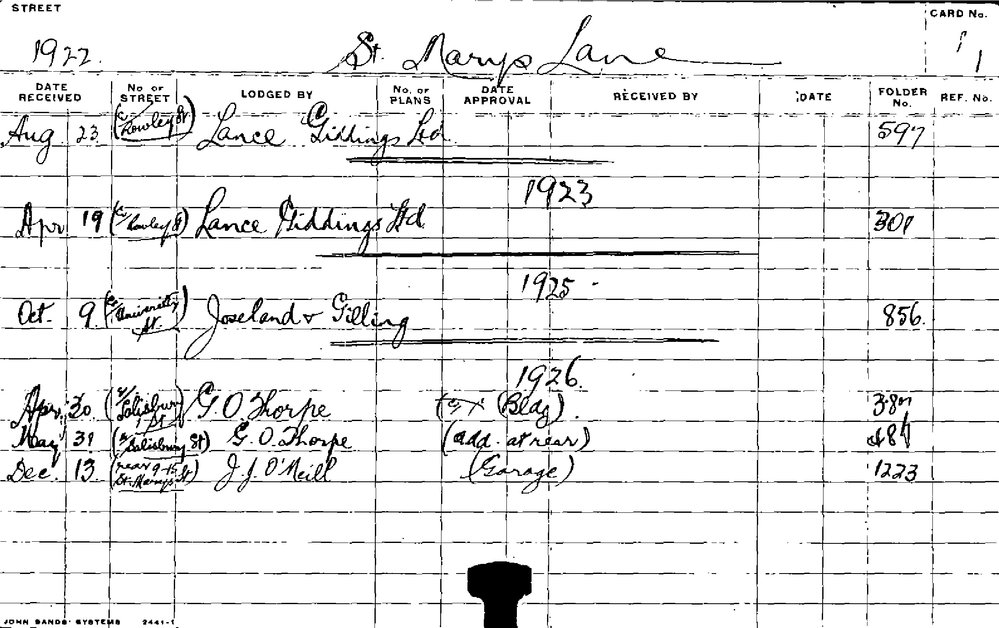 STREET
CARD No.
1922. St. Marys Lane 1
DATE RECEIVED No OF STREET LODGED BY No. OF PLANS DATE APPROVAL RECEIVED BY DATE FOLDER No. REF. No.
Aug 23 (Rowley St) Lance Giddings Ltd. 597
1923
Apr 19 (Rowley St) Lance Giddings Ltd. 301
1925
Oct. 9 (University St.) Joseland & Gilling 856.
1926.
Apr. 30 (Salisbury St) G. O. Thorpe (Bldg).
May 31 (Salisbury St) G. O. Thorpe (add. at rear)
Dec. 13. (rear 9-15 St. Marys St) J. J. O'Neill (Garage) 1223
JOHN SANDS' SYSTEMS 2441-1